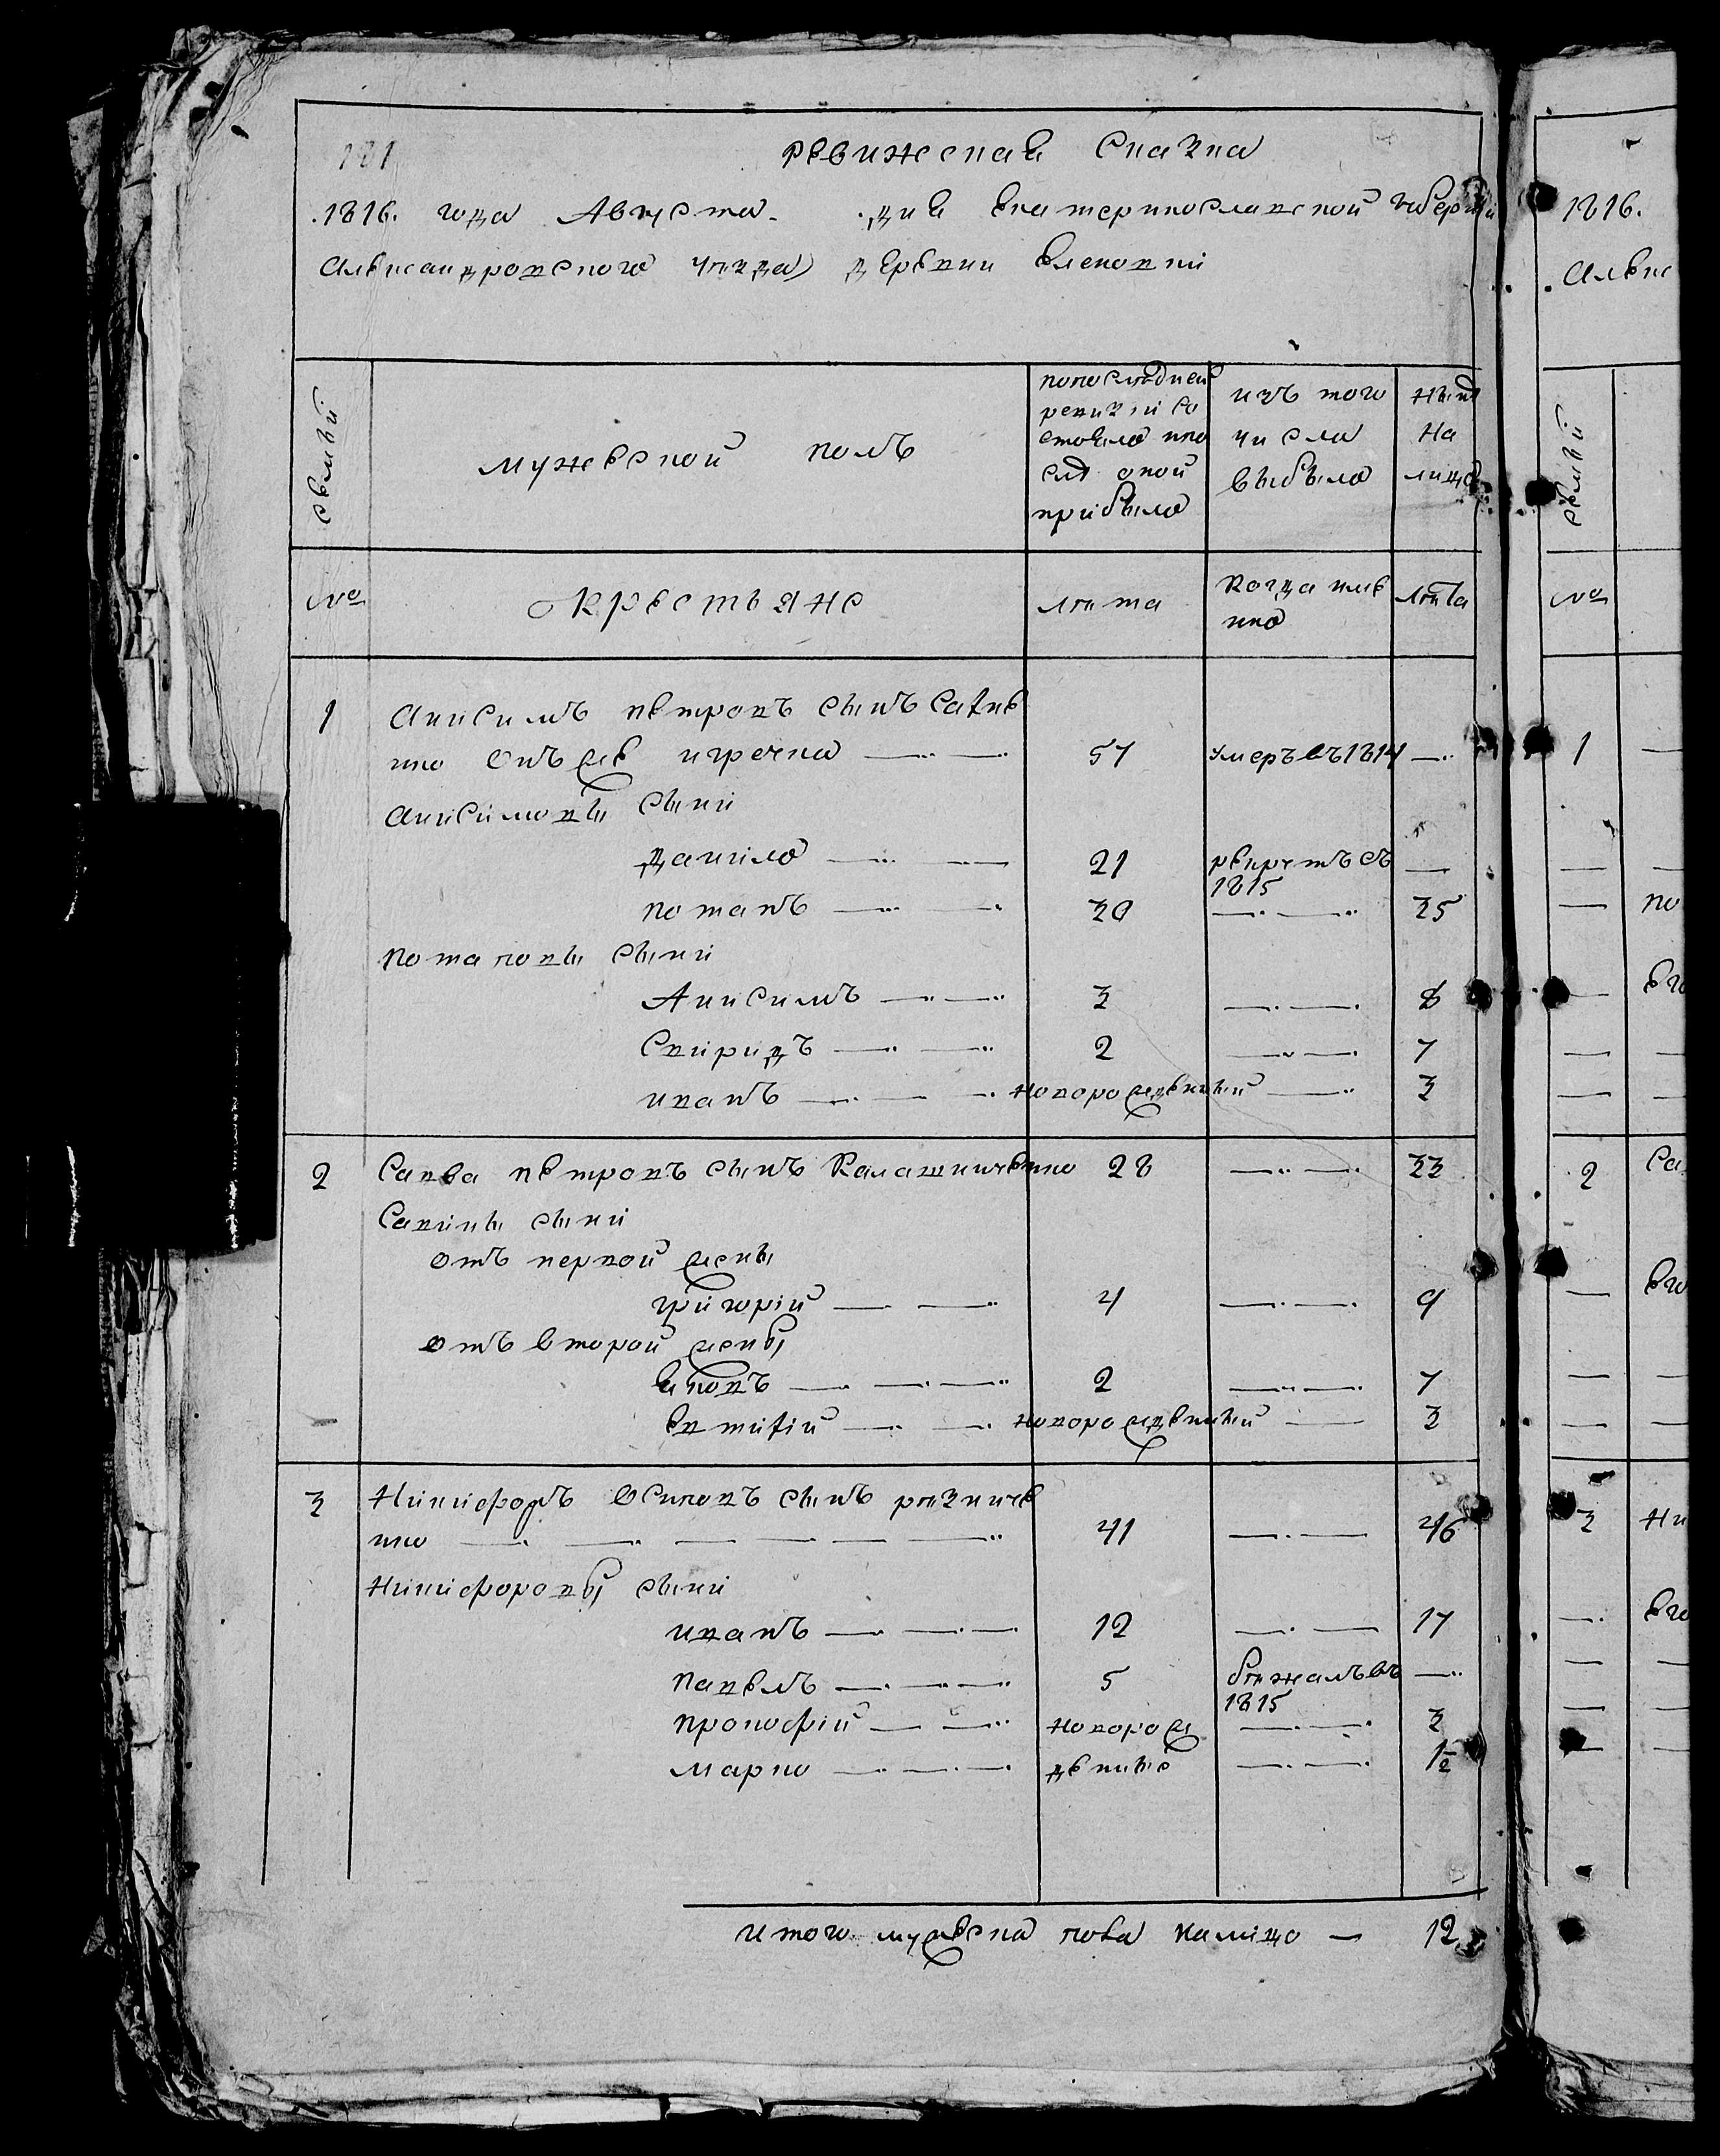 121
ревижская Сказка
1816. года Августа. дня Екатеринославской губернии
Александровского уезда деревни Еленовки
семьи
мужеской полъ
попоследней
ревизіи со
стояло ипо
слѣ оной
прибыло
изъ того
числа
выбыло
Нынѣ
На
лицо
№
Крестьяне
лѣта
Когда имѣ
нно
лѣта
1
Анисимъ петровъ сынъ
нко онъ же игречка 57 умеръ въ 1814 —
Анисимовы сыни
данило 21 рекрутъ съ —
1815
потапъ 30 — 35
потаповы сыни
Анисимъ 3 — 8
Свиридъ 2 — 7
иванъ новорожденный — 3
2
Савва петровъ сынъ Калашниченко 28 — 33
Савины сыни
отъ первой жены
григорій 4 — 9
отъ второй жены
яковъ 2 — 7
евтифій новорожденный — 3
3
Никифоръ Осиповъ сынъ резниче
нко 41 — 46
Никифоровы сыни
иванъ 12 — 17
павелъ 5 бѣжалъ въ —
1815
прокофій новорож — 3
марко денные — 1½
итого мужеска пола налицо — 12
1816.
Алекс
семьи
№
1
по
его
2
Са
его
3
Ни
его